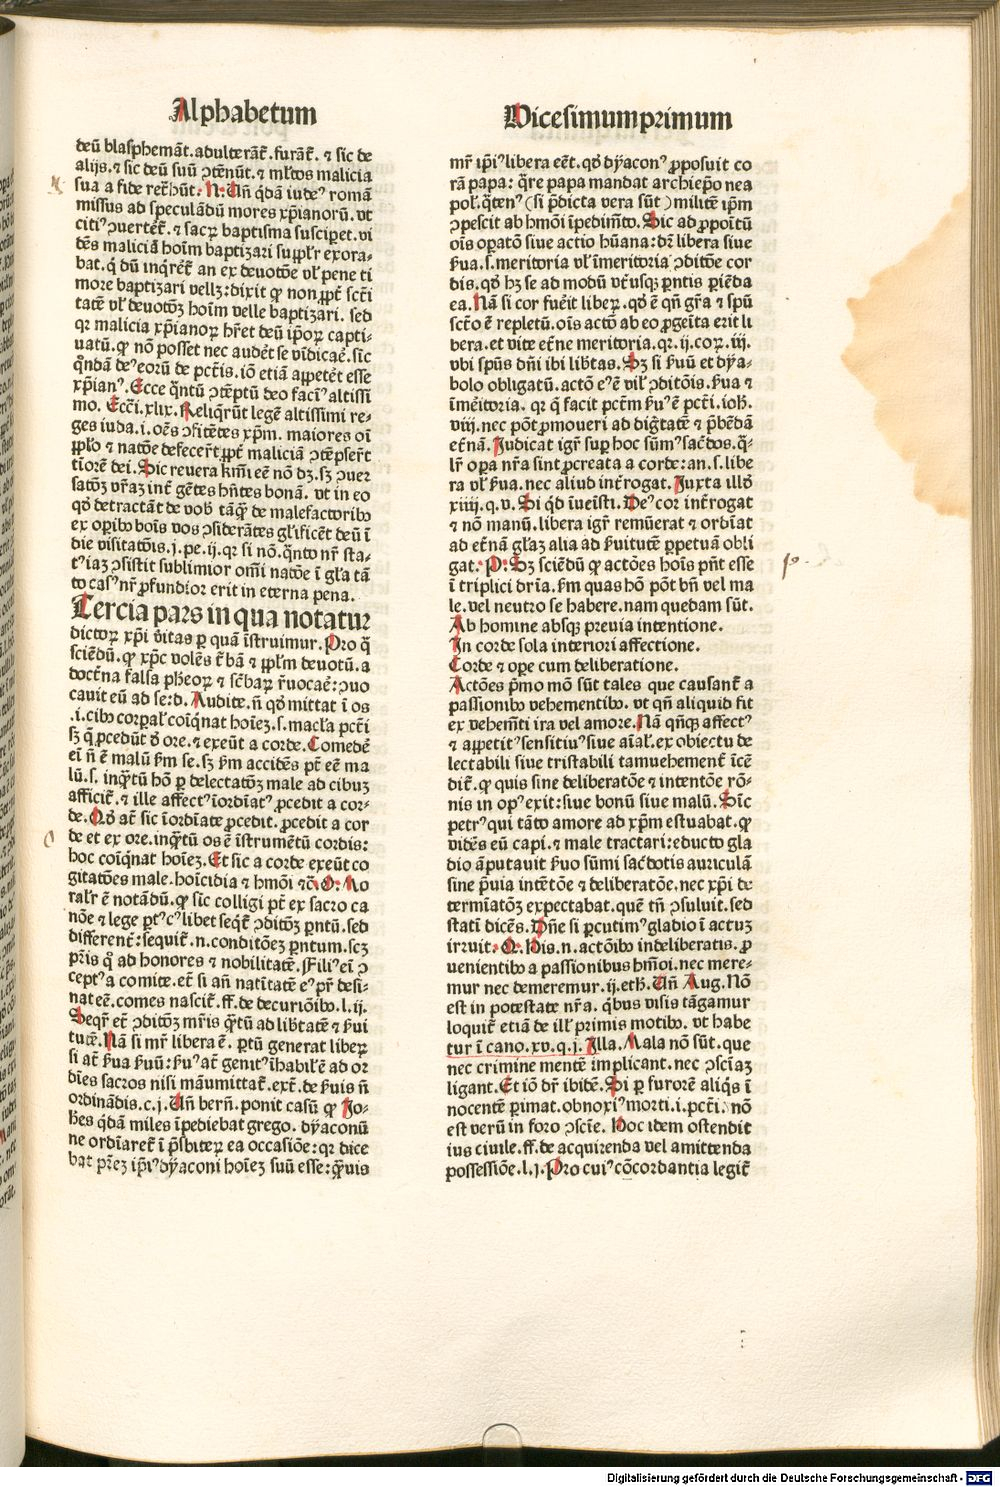 Alphabetum
deū blasphemāt. adulterāt̄. furāt̄. ⁊ sic de
alijs. ⁊ sic deū suū ↄtēnūt. ⁊ ml̄tos malicia
sua a fide ret̄hūt. N. Uñ q̄dā iudeꝰ romā
missus ad speculādū mores xp̄ianorū. vt
citiꝰ ↄuertet̄. ⁊ sacꝝ baptisma susciꝑet. vi
dēs maliciā hoīm baptizari suppl̄r exora-
bat. q̄ dū inq̄ret̄ an ex deuotōe vl̓ pene ti
more baptizari vellꝫ: dixit ꝙ non ꝓpt̄ sct̄i
tatē vl̓ deuotōꝫ hoīm velle baptizari. sed
qꝛ malicia xp̄ianoꝝ hr̄et deū ip̄oꝝ capti-
uatū. ꝙ nō posset nec audēt se vīdicaē. sic
q̄ndā deꝰ eorū de pct̄is. iō etiā appetēt esse
xp̄ianꝰ. Ecce q̄ntū ↄtēptū deo faciꝰ altissi
mo. Ecc̄i. xlix. Reliq̄rūt legē altissimi re-
ges iuda. i. oēs ↄfitētes xp̄m. maiores oī
ppl̓o ⁊ natōe defecer̄t ꝓpt̄ maliciā ↄtēpser̄t
tiorē dei. Sic reuera km̄i eē nō dꝫ. sꝫ ↄuer
satōꝫ vr̄aꝫ int̄ gētes hn̄tes bonā. vt in eo
qd̓ detractāt de vob̄ tāq̄ de malefactoribꝰ
ex oꝑibꝰ boīs vos ↄsiderātes gl̓ificēt deū ī
die visitatōis. j. pe. ij. qꝛ si nō. q̄nto nr̄ sta-
tꝰ iaꝫ ↄsistit sublimior om̄i natōe ī gl̓a tā
to casꝰ nr̄ ꝓfundior erit in eterna pena.
Tercia pars in qua notatur
dictoꝝ xp̄i v̄itas ꝑ quā īstruimur. Pro q̄
sciēdū. ꝙ xp̄c volēs t̄bā ⁊ ppl̓m deuotū. a
doct̄na falsa ph̓eoꝝ ⁊ sc̄baꝝ r̄uocaē: ↄuo
cauit eū ad se: d. Audite. ñ qd̓ mittat ī os
.i. cibꝰ corꝑal̓ coīq̄nat hoīeꝫ. s. macl̓a pct̄i
sꝫ q̄ ꝓcedūt d̓ ore. ⁊ exeūt a corde. Comedē
eī ñ ē malū ẜm se. sꝫ ẜm accidēs pt̄ eē ma
lū. s. inq̄tū hō ꝑ delectatōꝫ male ad cibuꝫ
afficit̄. ⁊ ille affectꝰ īordīatꝰ ꝓcedit a cor-
de. Qd̓ at̄ sic īordīate ꝓcedit. ꝓcedit a cor
de et ex ore. inq̄tū os ē īstrumētū cordis:
hoc coīq̄nat hoīeꝫ. Et sic a corde exeūt co
gitatōes male. hoīcidia ⁊ hm̄oi ⁊c̄. O. No
ral̓r ē notādū. ꝙ sic colligi pt̄ ex sacro ca
nōe ⁊ lege ꝑtꝰ cꝰ libet seqt̄ ↄditōꝫ ꝑntū. sed
different̄: sequit̄. n. conditōeꝫ ꝑntum. scꝫ
pr̄is q̄ ad honores ⁊ nobilitatē. Filiꝰ eī ↄ
ceptꝰ a comite. et̄ si añ natītatē eꝰ pr̄ desi-
nat eē. comes nascit̄. ff. de decuriōibꝰ. l. ij.
Seqr̄ et̄ ↄditōꝫ mr̄is q̄tū ad lib̄tatē ⁊ ẜui
tutē. Nā si mr̄ libera ē. ꝑtū generat libeꝝ
si at̄ ẜua ẜuū: ẜuꝰ at̄ genitꝰ īhabil̓ ē ad or
dīes sacros nisi māumittat̄. ext̄. de ẜuis ñ
ordinādis. c. j. Uñ bern̄. ponit casū ꝙ Jo-
h̓es q̄dā miles īpediebat grego. dyaconū
ne ordīaret̄ ī p̄sbiteꝝ ea occasiōe: qꝛ dice
bat pr̄eꝫ ip̄iꝰ dyaconi hoīeꝫ suū esse: q̄uis
Uicesimumprimum
mr̄ ip̄iꝰ libera eēt. qd̓ dyaconꝰ ꝓposuit co
rā papa: q̄re papa mandat archiep̄o nea
pol̓. q̄tenꝰ (si p̄dicta vera sūt) militē ip̄m
ↄpescit ab hm̄oi īpedimt̄o. Sic ad ꝓpoītū
oīs oꝑatō siue actio hūana: dr̄ libera siue
ẜua. s. meritoria vl̓ īmeritoria ↄditōe cor
dis. qd̓ hꝫ se ad modū vt̄usqꝫ ꝑntis ꝑiēda
ea. Nā si cor fuēit libeꝝ. qd̓ ē qñ gr̄a ⁊ spū
sct̄o ē repletū. oīs actō ab eo ꝓgeīta erit li
bera. et vite et̄ne meritoria. qꝛ. ij. coꝝ. iij.
vbi spūs dn̄i ibi lib̄tas. Sꝫ si ẜuū et dya-
bolo obligatū. actō eꝰ ē vil̓ ↄditōis. ẜua ⁊
īmēitoria. qꝛ q̄ facit pct̄m ẜuꝰ ē pct̄i. ioh̓.
viij. nec pōt ꝓmoueri ad dig̓tatē ⁊ p̄bēdā
et̄nā. Judicat igr̄ suꝑ hoc sūmꝰ sac̓dos. q̄-
lr̄ oꝑa nr̄a sint ꝓcreata a corde: an. s. libe
ra vl̓ ẜua. nec aliud int̄rogat. Juxta illd̓
xiiij. q. v. Si qd̓ īueīsti. Deꝰ cor int̄rogat
⁊ nō manū. libera igr̄ remūerat ⁊ ordīat
ad et̄nā gl̓aꝫ alia ad ẜuitutē ꝑpetuā obli
gat. P. Sꝫ sciēdū ꝙ actōes hoīs pn̄t esse
ī triplici dr̄ia. ẜm quas hō pōt bn̄ vel ma
le. vel neutro se habere. nam quedam sūt.
Ab homine absqꝫ preuia intentione.
In corde sola interiori affectione.
Corde ⁊ oꝑe cum deliberatione.
Actōes p̄mo mō sūt tales que causant̄ a
passionibꝰ vehementibꝰ. vt qñ aliquid fit
ex vehemt̄i ira vel amore. Nā qñqꝫ affectꝰ
⁊ appetitꝰ sensitiuꝰ siue aīal̓. ex obiectu de
lectabili siue tristabili tamuehement̄ īcē
dit̄. ꝙ quis sine deliberatōe ⁊ intentōe rō-
nis in opꝰ exit: siue bonū siue malū. Sic̄
petrꝰ qui tāto amore ad xp̄m estuabat. ꝙ
vidēs eū capi. ⁊ male tractari: educto gla
dio āputauit ẜuo sūmi sac̓dotis auriculā
sine p̄uia intētōe ⁊ deliberatōe. nec xp̄i de
termīatōꝫ expectabat. quē tn̄ ↄsuluit. sed
statī dicēs. Dn̄e si ꝑcutimꝰ gladio ī actuꝫ
irruit. Q. His. n. actōibꝰ indeliberatis. ꝓ
uenientibꝰ a passionibus hm̄oi. nec mere-
mur nec demeremur. ij. eth̓. Uñ Aug. Nō
est in potestate nr̄a. q̄bus visis tāgamur
loquit̄ etiā de ill̓ primis motibꝰ. vt habe
tur ī cano. xv. q. j. Illa. Mala nō sūt. que
nec crimine mentē implicant. nec ↄsciaꝫ
ligant. Et iō dr̄ ibidē. Si ꝑ furorē aliq̄s ī
nocentē ꝑimat. obnoxiꝰ morti. i. pct̄i. nō
est verū in foro ↄscīe. Hoc idem ostendit
ius ciuile. ff. de acquirenda vel amittenda
possessiōe. l. j. Pro cuiꝰ cōcordantia legit̄
p.
Digitalisierung gefördert durch die Deutsche Forschungsgemeinschaft - DFG